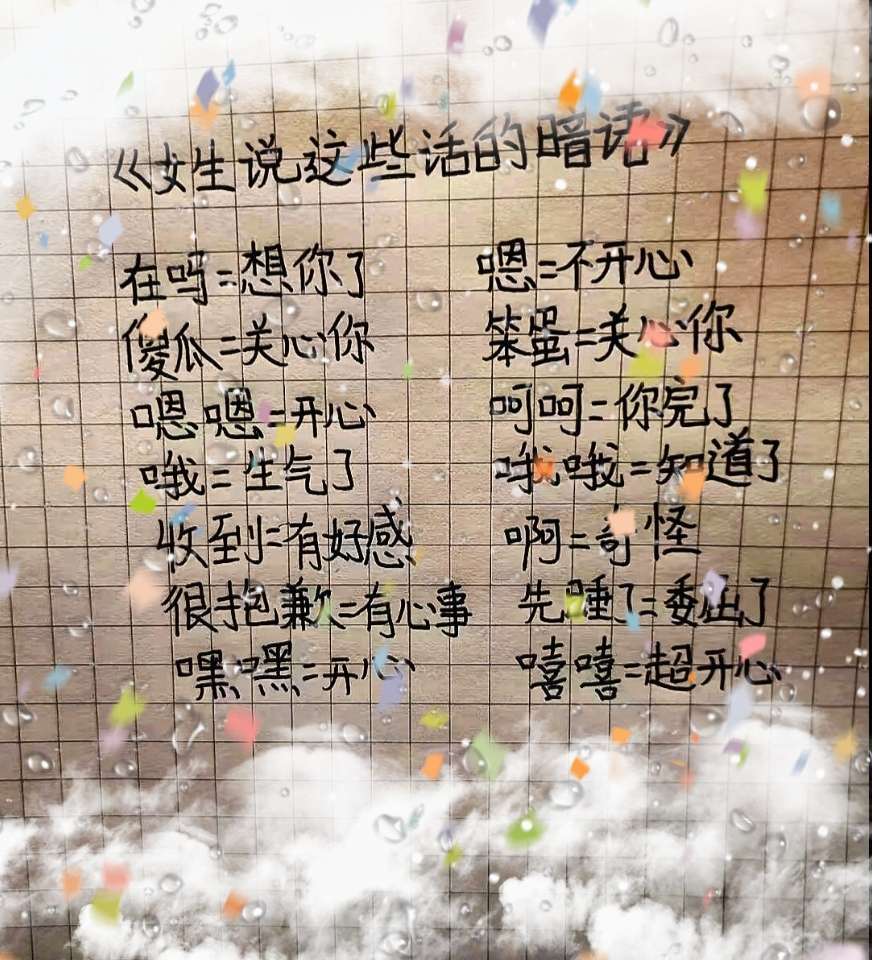 《女生说这些话的暗语》
在吗=想你了 嗯=不开心
傻瓜=关心你 笨蛋=关心你
嗯嗯=开心 呵呵=你完了
哦=生气了 哦哦=知道了
收到=有好感 啊=奇怪
很抱歉=有心事 先睡了=委屈了
嘿嘿=开心 嘻嘻=超开心